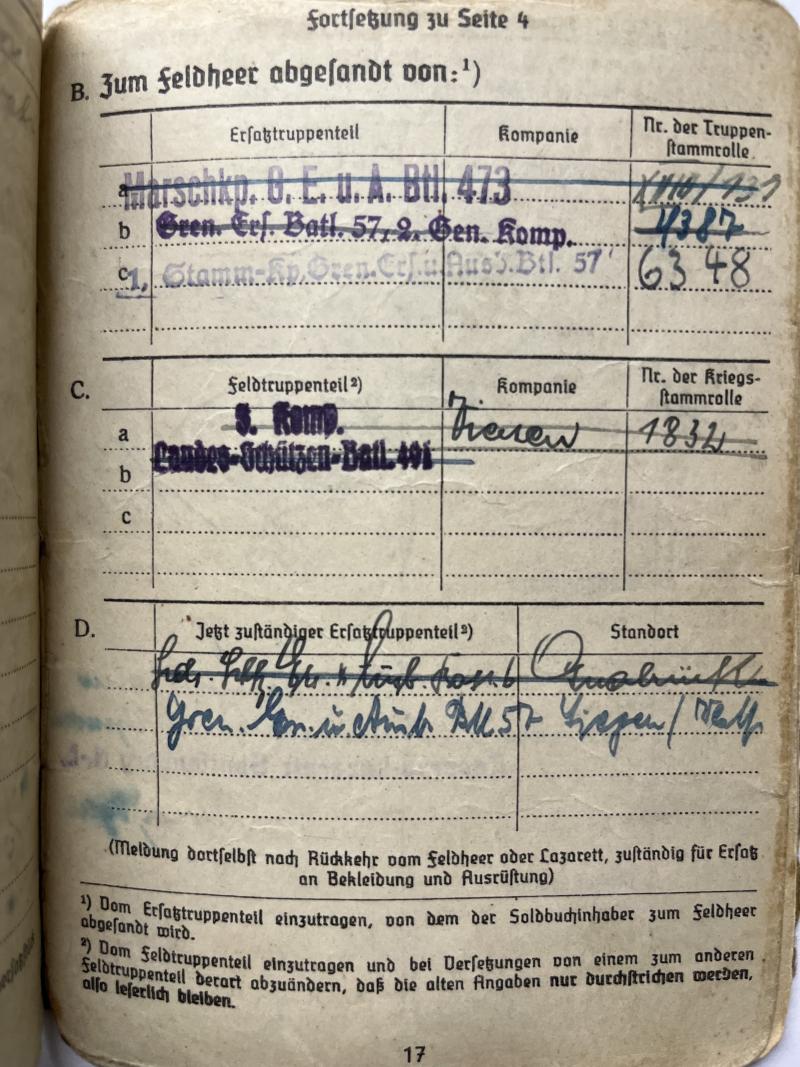 Fortsetzung zu Seite 4
B. Zum Feldheer abgesandt von:¹)
Ersatztruppenteil
Kompanie
Nr. der Truppen-
stammrolle
a Marschkp. G. E. u. A. Btl. 473
b Gren. Ers. Batl. 57, 2. Gen. Komp. 4387
c 1, Stamm-Kp. Gren. Ers. u. Ausb. Btl. 57 6348
C. Feldtruppenteil²)
Kompanie
Nr. der Kriegs-
stammrolle
a 3. Komp. 1832
b Landes-Schützen-Batl. 491
c
D. Jetzt zuständiger Ersatztruppenteil²)
Standort
Gren. Ers. u. Ausb. Btl 57 Siegen / Westf.
(Meldung dortselbst nach Rückkehr vom Feldheer oder Lazarett, zuständig für Ersatz
an Bekleidung und Ausrüstung)
¹) Vom Ersatztruppenteil einzutragen, von dem der Soldbuchinhaber zum Feldheer
abgesandt wird.
²) Vom Feldtruppenteil einzutragen und bei Versetzungen von einem zum anderen
Feldtruppenteil derart abzuändern, daß die alten Angaben nur durchstrichen werden,
also leserlich bleiben.
17